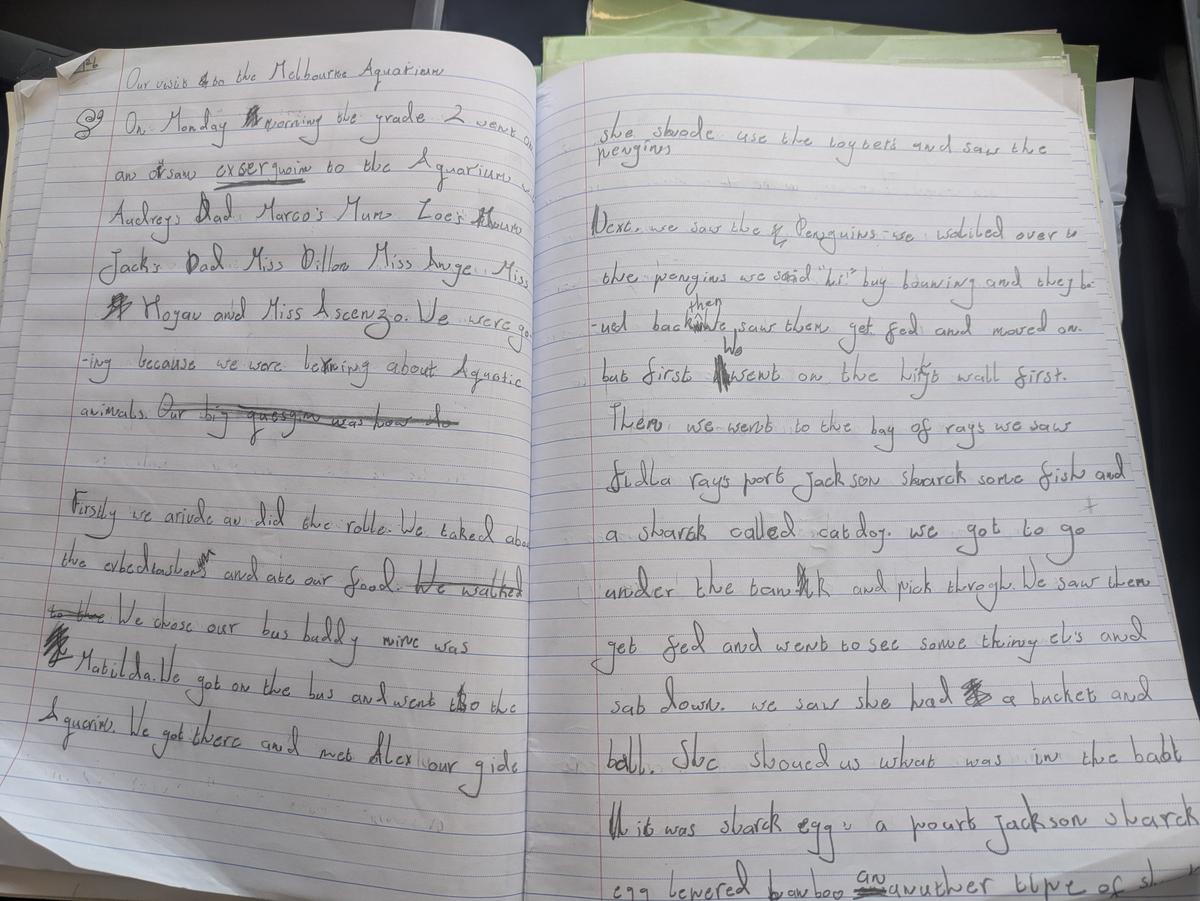 Our visit to the Melbourne Aquarium
On Monday morning the grade 2 went on
an exserguoin to the Aquarium
Audreys Dad Marco's Mum Zoe's Mum
Jack's Dad Miss Dillon Miss Ange Miss
Hogan and Miss Ascenzo. We were go
-ing because we were lerning about Aquatic
animals. Our big quesgin was how do
Firstly we arivde an did the rolle. We taked abou
the and ate our food. We walked
to the We chose our bus buddy mine was
Matilda. We got on the bus and went to the
Aquariu. We got there and met Alex our gide
she shode use the toylets and saw the
pengins
Next, we saw the Penguins we waited over to
the pengins we said "hi" buy bouwing and they bo-
-ued back then We saw them get fed and moved on.
but first We went on the wall first.
Then we went to the bay of rays we saw
fidla rays port Jackson sharck some fish and
a sharck called catdog. we got to go
under the tank and pick throgh. We saw them
get fed and went to see some thing els and
sat down. we saw she had a bucket and
ball. She shoued us what was in the babt
it was sharck eggs a pourt Jackson sharck
egg lewered bamboo an anuther tipe of